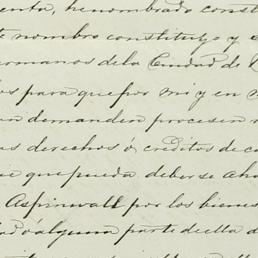 enta, he nombrado const
e nombro constituyo y
ermanos de la Ciudad de
os para que por mi y en
an demanden procesen
as derechos ó creditos de c
e que pueda deberse aho
Aspinwall por los biene
ó alguna parte de ella d